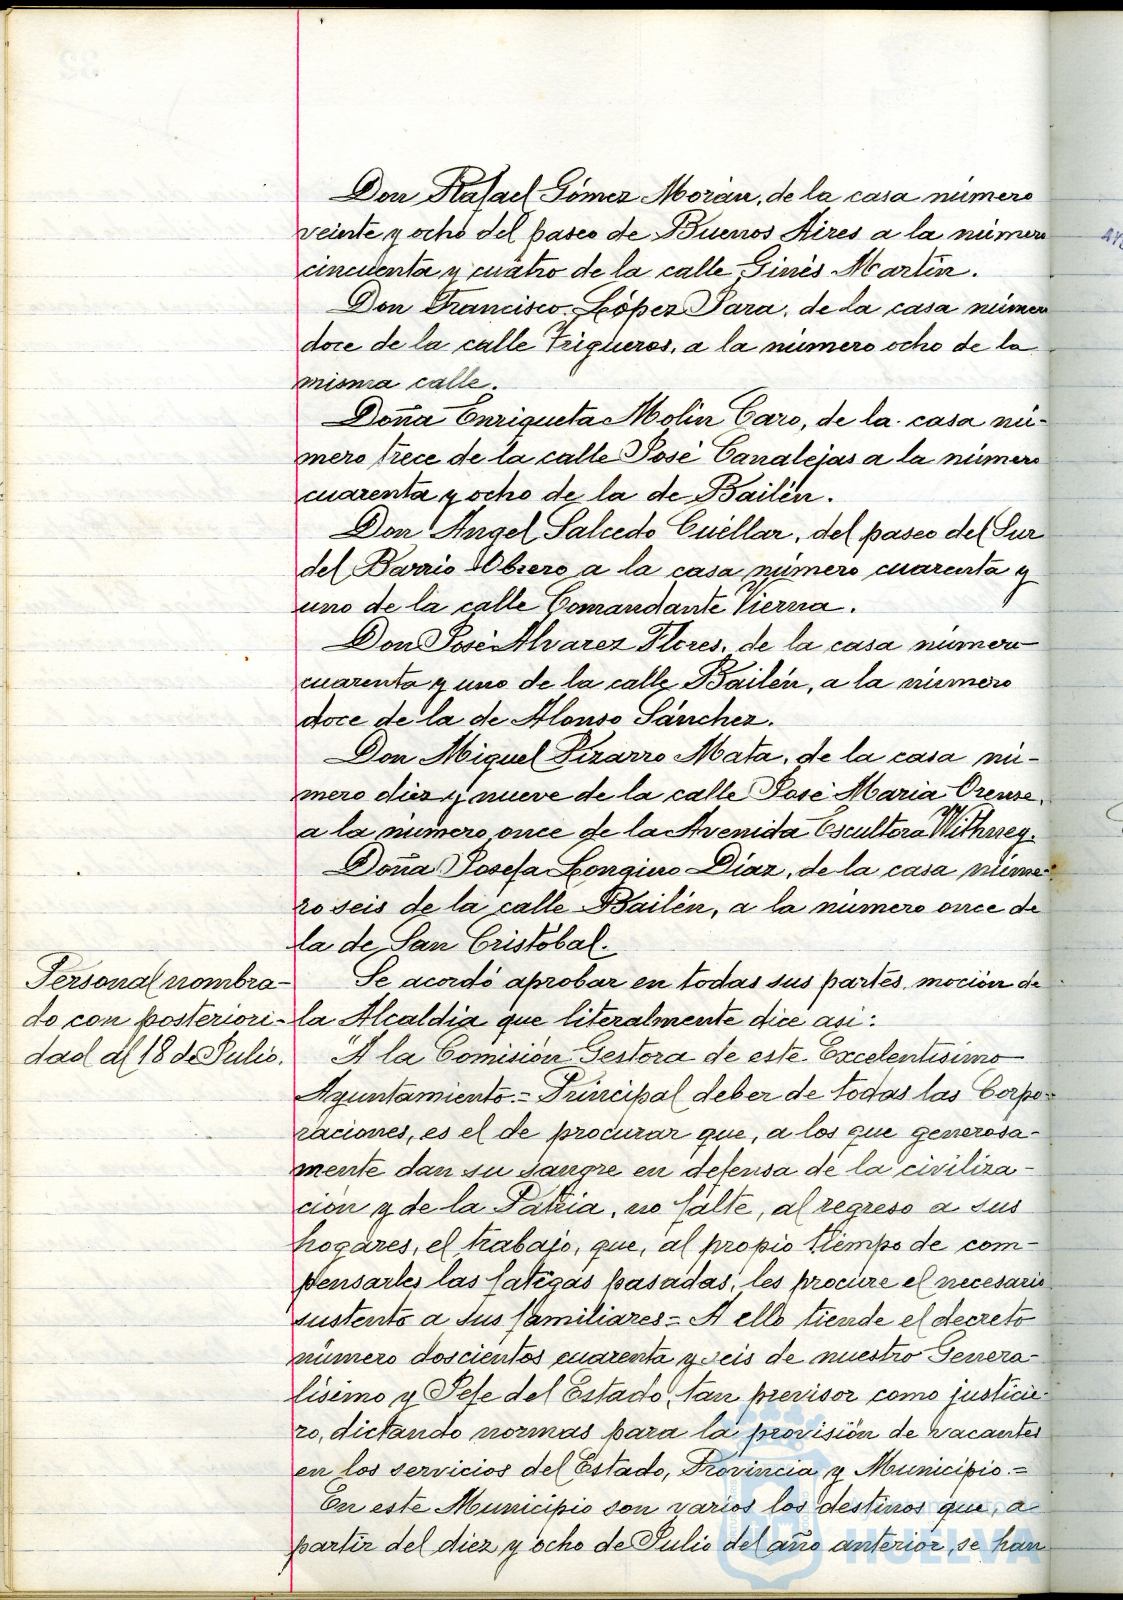 Don Rafael Gómez Morán, de la casa número
veinte y ocho del paseo de Buenos Aires a la número
cincuenta y cuatro de la calle Ginés Martín.
Don Francisco López Para, de la casa número
doce de la calle Trigueros, a la número ocho de la
misma calle.
Doña Enriqueta Molin Caro, de la casa nú-
mero trece de la calle José Canalejas a la número
cuarenta y ocho de la de Bailén.
Don Angel Salcedo Cuéllar, del paseo del Sur
del Barrio Obrero a la casa número cuarenta y
uno de la calle Comandante Vierna.
Don José Alvarez Flores, de la casa número
cuarenta y uno de la calle Bailén, a la número
doce de la de Alonso Sánchez.
Don Miguel Pizarro Mata, de la casa nú-
mero diez y nueve de la calle José Maria Orense,
a la número once de la Avenida Escultora Withney.
Doña Josefa Longino Díaz, de la casa núme-
ro seis de la calle Bailén, a la número once de
la de San Cristóbal.
Personal nombra-
do con posteriori-
dad al 18 de Julio.
Se acordó aprobar en todas sus partes, moción de
la Alcaldia que literalmente dice asi:
"A la Comisión Gestora de este Excelentísimo
Ayuntamiento.= Principal deber de todas las Corpo-
raciones, es el de procurar que, a los que generosa-
mente dan su sangre en defensa de la civiliza-
ción y de la Patria, no falte, al regreso a sus
hogares, el trabajo, que, al propio tiempo de com-
pensarles las fatigas pasadas, les procure el necesario
sustento a sus familiares= A ello tiende el decreto
número doscientos cuarenta y seis de nuestro Genera-
lísimo y Jefe del Estado, tan previsor como justicie-
ro, dictando normas para la provisión de vacantes
en los servicios del Estado, Provincia y Municipio.=
En este Municipio son varios los destinos que, a
partir del diez y ocho de Julio del año anterior, se han
HUELVA